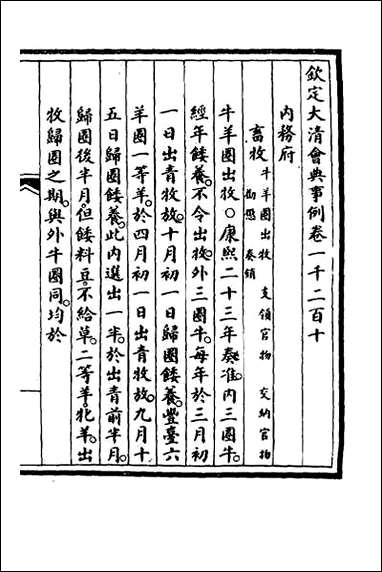 欽定大清會典事例卷一千二百十
內務府
畜牧 牛羊圈出牧 支領官物 交納官物
勸懲 奏銷
牛羊圈出牧○康熙二十三年奏准。內三圈牛。
經年餧養。不令出牧。外三圈牛。每年於三月初
一日出青牧放。十月初一日歸圈餧養。豐臺六
羊圈一等羊。於四月初一日出青牧放。九月十
五日歸圈餧養。此內選出一半。於出青前半月。
歸圈後半月。但餧料豆。不給草。二等羊。牝羊。出
牧歸圈之期。與外牛圈同。均於